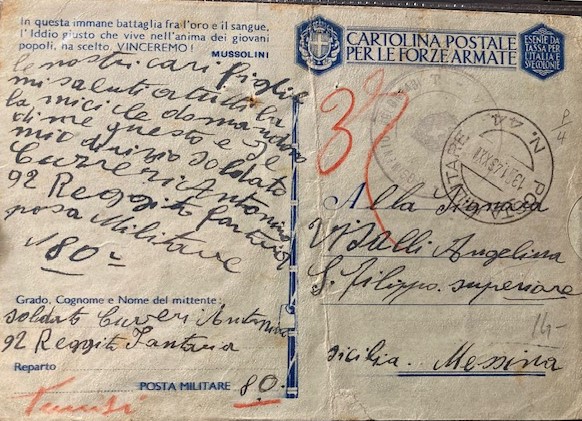 In questa immane battaglia fra l'oro e il sangue,
l'Iddio giusto che vive nell'anima dei giovani
popoli, ha scelto. VINCEREMO!
MUSSOLINI
le nostri cari figlie
mi saluti a tutti la
di me questo e il
mio dirizio soldato
Curreri Antonino
92 Reggito fanteria
posa Militare
180-
Grado, Cognome e Nome del mittente:
soldato Curreri Antonino
92 Reggito Fantaria
Reparto
POSTA MILITARE 80
CARTOLINA POSTALE
PER LE FORZE ARMATE
ESENTE DA
TASSA PER
L'ITALIA E
SUE COLONIE
P/4
POSTA MILITARE
N. 44
Alla Signora
Visalli Angelina
S. Filippo superiore
14-
sicilia.. Messina